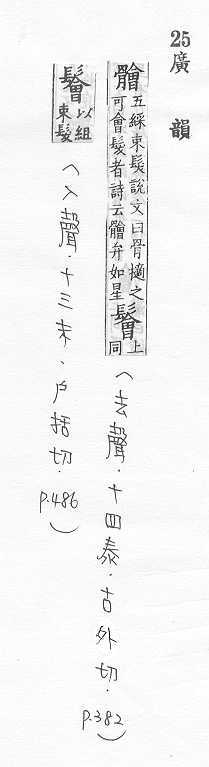 25廣韻
䯤五綵束髮說文曰骨擿之可會髮者詩云䯤弁如星鬠上同(去聲.十四泰.古外切.p.382)
鬠以組束髮(入聲.十三末、戶括切.p.486)